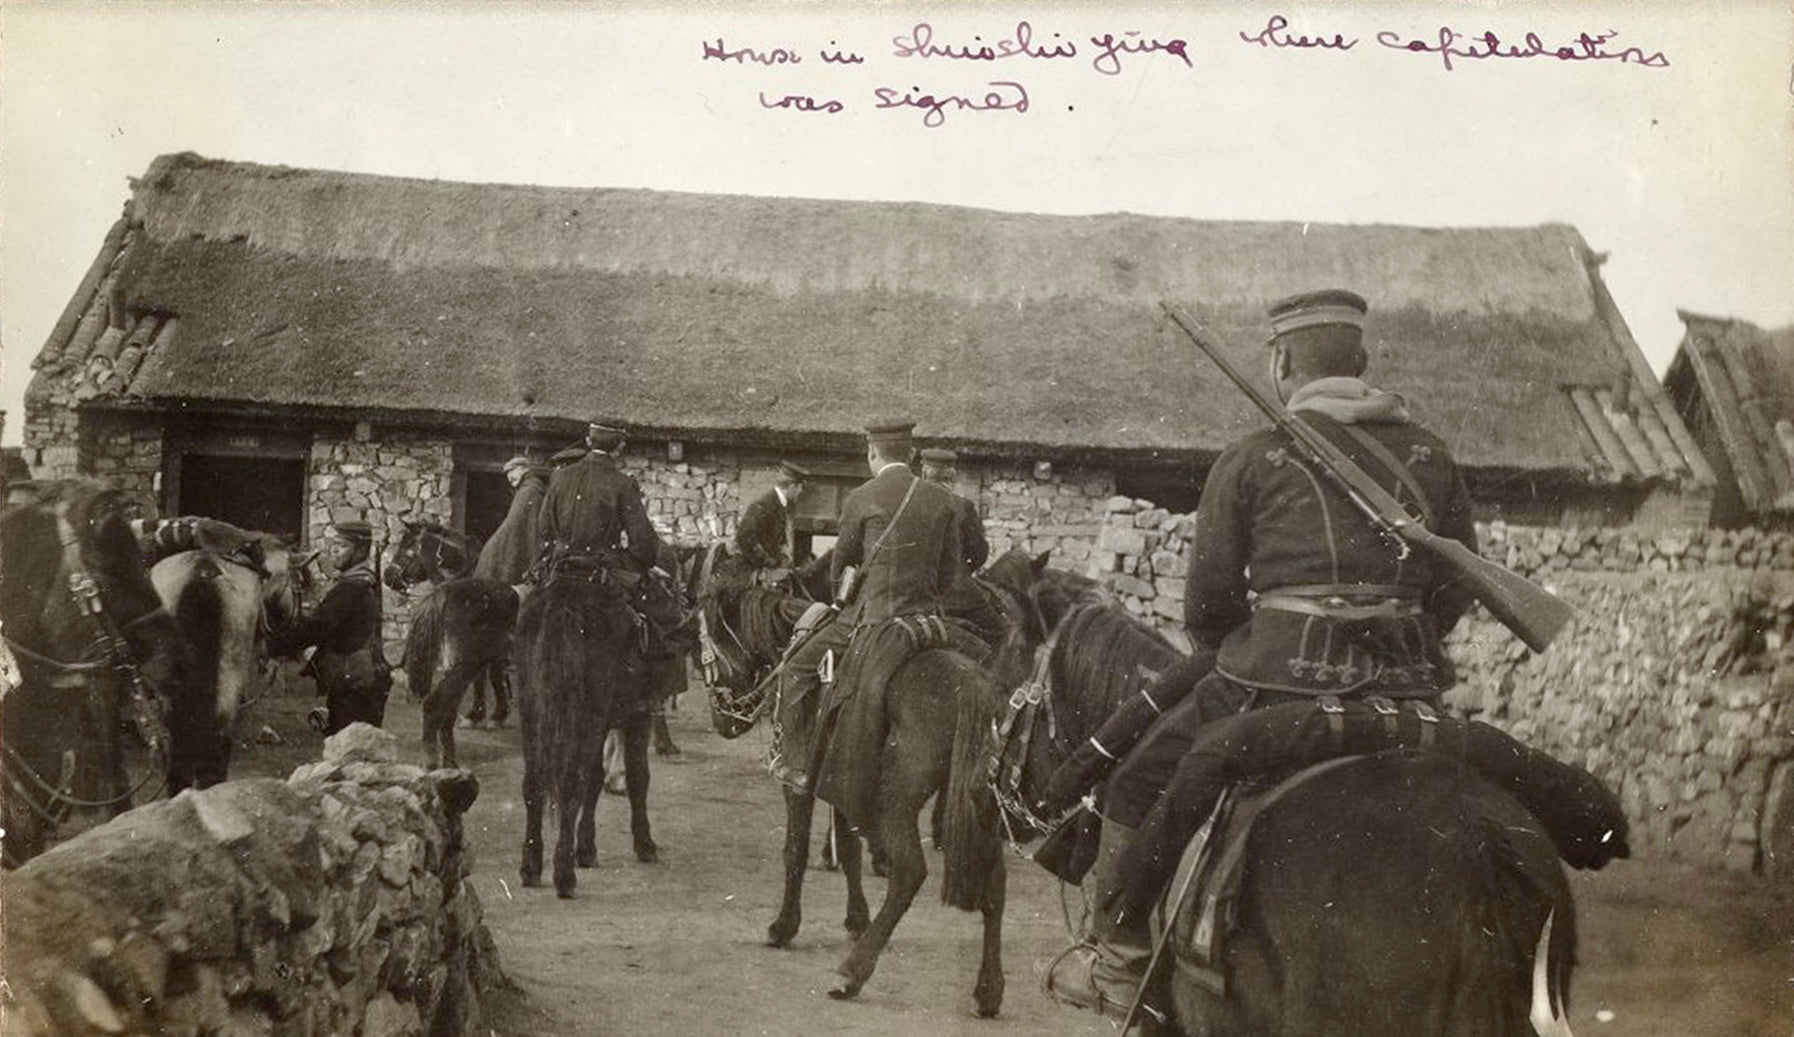 House in Shuishi ying where capitulation
was signed.